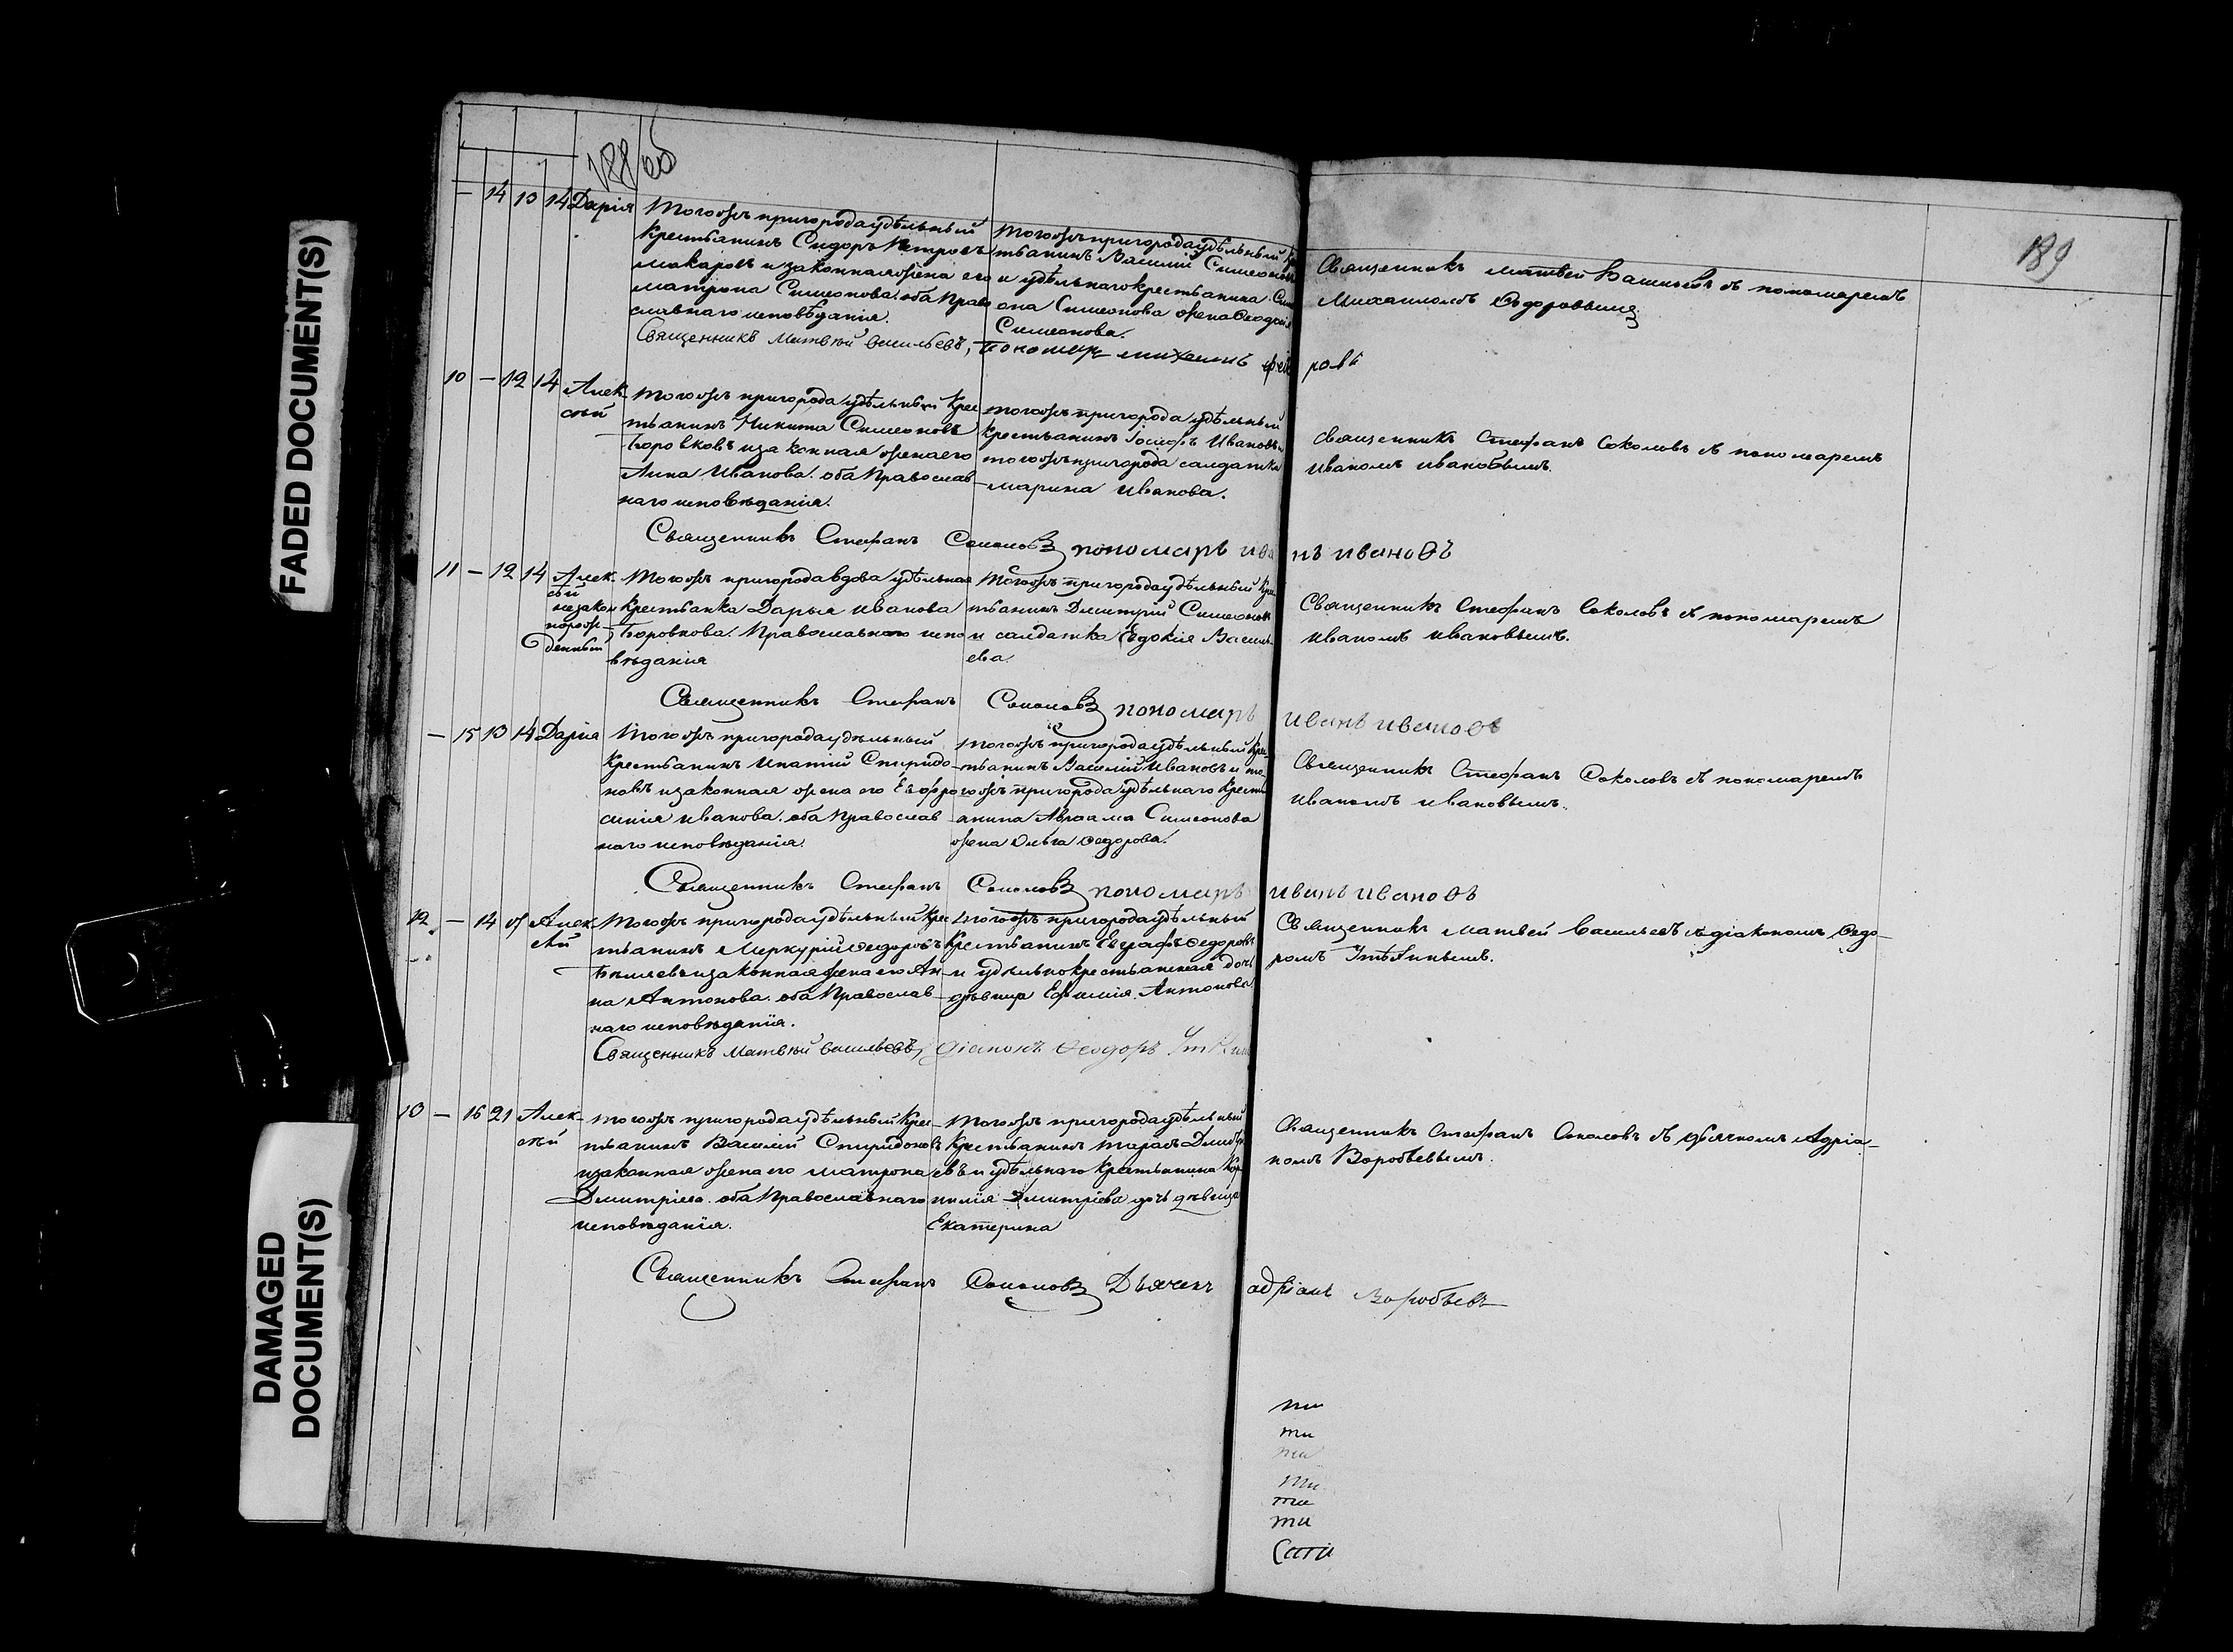 FADED DOCUMENT(S)
DAMAGED
DOCUMENT(S)
188 об
189
— 14 13 14 Дарія
Тогожъ пригорода удѣльный
крестьянинъ Сидоръ Петровъ
Макаровъ и законная жена его
Матрона Симеонова. оба Право
славнаго исповѣданія.
Тогожъ пригорода удѣльный
тьянинъ Василій Симеоновъ
и удѣльнаго крестьянина
она Симеонова жена Феодосія
Симеонова.
Священникъ Матвей Васильевъ съ пономаремъ
Михаиломъ Федоровымъ
Священникъ Матвѣй Васильевъ, Пономарь Михаилъ
10 — 12 14 Алек
сѣй
Тогожъ пригорода удѣльный Крес
тьянинъ Никита Симеоновъ
Боровковъ и законная жена его
Анна Иванова. оба Православ
наго исповѣданія.
тогожъ пригорода удѣльный
крестьянинъ Іосифъ Ивановъ и
тогожъ пригорода салдатка
Марина Иванова.
Священникъ Стефанъ Соколовъ съ пономаремъ
Иваномъ Ивановымъ.
Священникъ Стефанъ Соколовъ пономарь иванъ ивановъ
11 — 12 14 Алек
сѣй
незакон
норож
денный
Тогожъ пригорода вдова удѣльная
Крестьянка Дарья Иванова
Боровкова Православнаго испо
вѣданія
Тогожъ пригорода удѣльный Крес
тьянинъ Дмитрій Симеоновъ
и салдатка Евдокія Василь
ева.
Священникъ Стефанъ Соколовъ съ пономаремъ
Иваномъ Ивановымъ.
Священникъ Стефанъ Соколовъ пономарь иванъ ивановъ
— 15 13 14 Дарія
Тогожъ пригорода удѣльный
Крестьянинъ Ипатій Спиридо
новъ и законная жена его Евфро
синія Иванова. оба Православ
наго исповѣданія.
Тогожъ пригорода удѣльный Крес
тьянинъ Василій Ивановъ и то
гожъ пригорода удѣльнаго Кресть
янина Авраама Симеонова
жена Ольга Федорова.
Священникъ Стефанъ Соколовъ съ пономаремъ
Иваномъ Ивановымъ.
Священникъ Стефанъ Соколовъ пономарь иванъ ивановъ
12 — 14 Алек
сѣй
Тогожъ пригорода удѣльный Крес
тьянинъ Меркурій Федоровъ
и законная жена его Ан
на Антонова. оба Православ
наго исповѣданія.
Тогожъ пригорода удѣльный
Крестьянинъ Евграфъ Федоровъ
и удѣльно крестьянская дочь
дѣвица Ефимія Антонова
Священникъ Матвей Васильевъ съ діакономъ Федо
ромъ
Священникъ Матвѣй Васильевъ, Діаконъ Феодоръ
13 — 16 21 Алек
сѣй
Тогожъ пригорода удѣльный Крес
тьянинъ Василій Спиридоновъ
и законная жена его Матрона
Дмитріева. оба Православнаго
исповѣданія.
Тогожъ пригорода удѣльный
Крестьянинъ Тарасъ Дмитрі
евъ и удѣльнаго Крестьянина Кор
нилія Дмитріева дочь дѣвица
Екатерина
Священникъ Стефанъ Соколовъ съ дьячкомъ Адріа
номъ Воробьевымъ.
Священникъ Стефанъ Соколовъ Дьячекъ адріанъ Воробьевъ
ти
ти
ти
ти
ти
ти